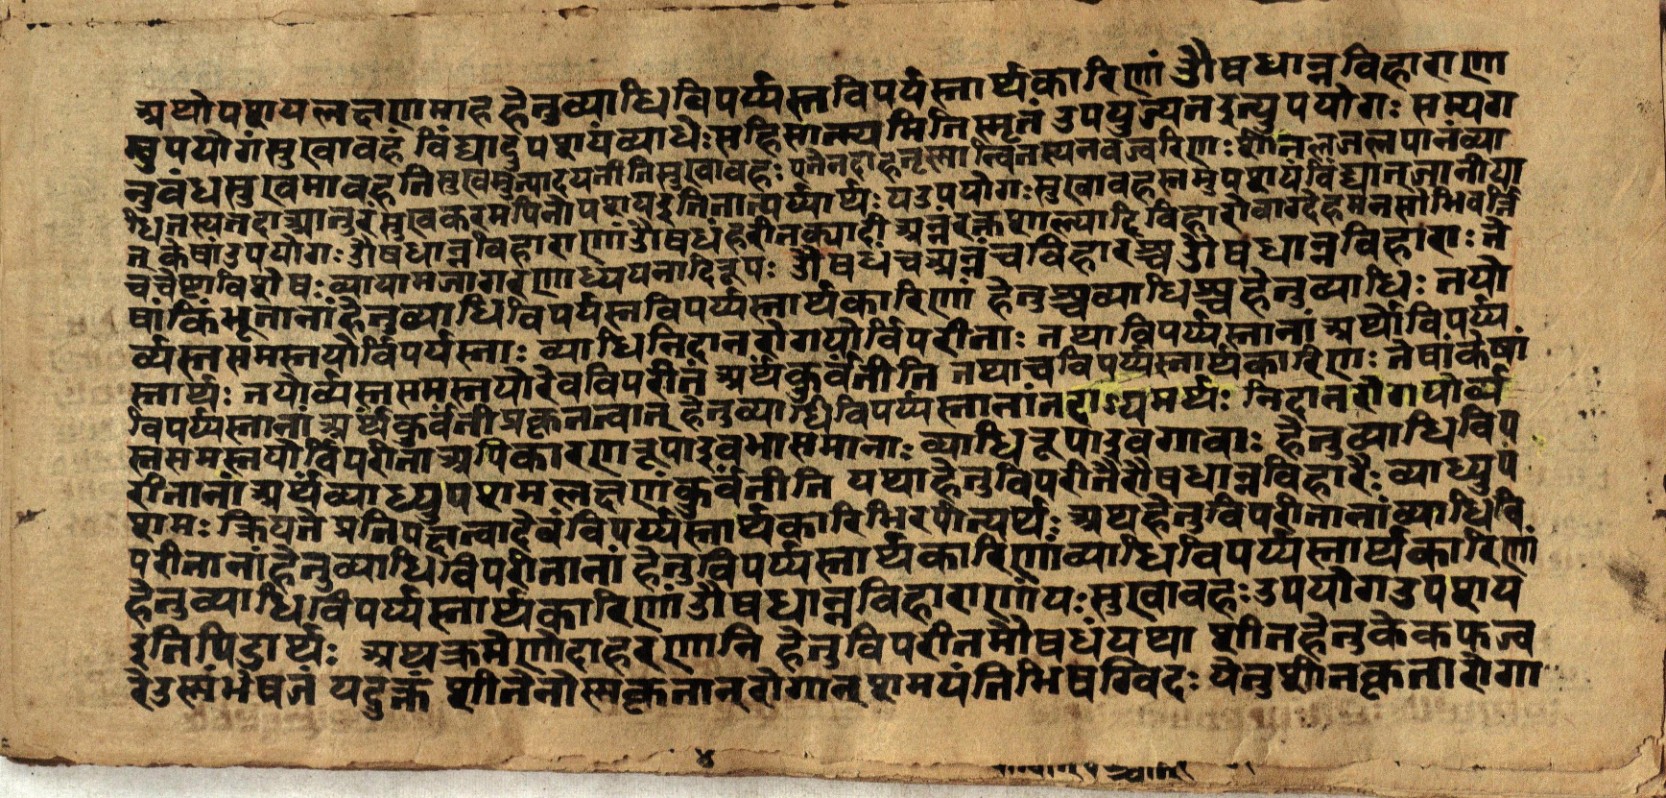 अथोपशयलक्षणमाह हेतुव्याधिविपर्य्यस्तविपर्यस्तार्थकारिणां औषधान्नविहाराणा
मुपयोगंसुखावहं विंद्यादुपशयंव्याधेःसहिसात्म्यमितिस्मृतं उपयुज्यतइत्युपयोगः सम्यग
नुवंधसुखमावहतिसुखमुत्पादयतीतिसुखावहः शीतलजलपानंव्या
धितस्यतदाआतुरंसुखकरमपिनोपशयइतितात्पर्य्यार्थः यउपयोगःसुखावहस्तमुपशयंविंद्यात्जानीया
त् केषांउपयोगः औषधान्नविहाराणांऔषधंहरीतक्यादी अन्नरक्तशाल्यादि विहारोवाग्देहमनसोभिवर्त्ति
चचेष्टाविशेषः व्यायामजागरणाध्ययनादिरूपः औषधंचअन्नंचविहारश्चऔषधान्नविहाराः ते
षांकिंभूतानांहेतुव्याधिविपर्यस्तविपर्य्यस्तार्थकारिणां हेतुश्चव्याधिश्चहेतुव्याधिः तयो
र्व्यस्तसमस्तयोर्विपर्यस्ताः व्याधिनिदानरोगयोर्विपरीताः तथाविपर्य्यस्तानां अर्थोविपर्य्य
स्तार्थः तयोर्व्यस्तसमस्तयोरेवविपरीत अर्थंकुर्वंतीति तथाचविपर्य्यस्तार्थकारिणः तेषांकेषां
विपर्य्यस्तानां अर्थंकुर्वंती प्रकृतत्वात् हेतुव्याधिविपर्य्यस्तानांतदायमर्थः निदानरोगयोर्व्य
स्तसमस्तयोर्विपरीताअपिकारणरूपाइवभासमानाः व्याधिरूपाइवगावाः हेतुव्याधिविप
रीतानां अर्थंव्याध्युपशमलक्षणंकुर्वंतीति यथाहेतुविपरीतैरौषधान्नविहारैः व्याध्युप
शमः क्रियते प्रतिपक्षत्वादेवंविपर्य्यस्तार्थकारिभिरपीत्यर्थः अथहेतुविपरीतानांव्याधिवि
परीतानांहेतुव्याधिविपरीतानां हेतुविपर्य्यस्तार्थकारिणांव्याधिविपर्य्यस्तार्थकारिणां
हेतुव्याधिविपर्य्यस्तार्थकारिणांऔषधान्नविहाराणांयःसुखावहःउपयोगउपशय
इतिपिंडार्थः अथक्रमेणोदाहरणानि हेतुविपरीतमौषधंयथा शीतहेतुकेकफज्व
रेउस्मंभेषजं यदुक्तं शीतेनोस्मकृतान्रोगान्शमयंतिभिषग्विदः येतुशीतकृतारोगा
४